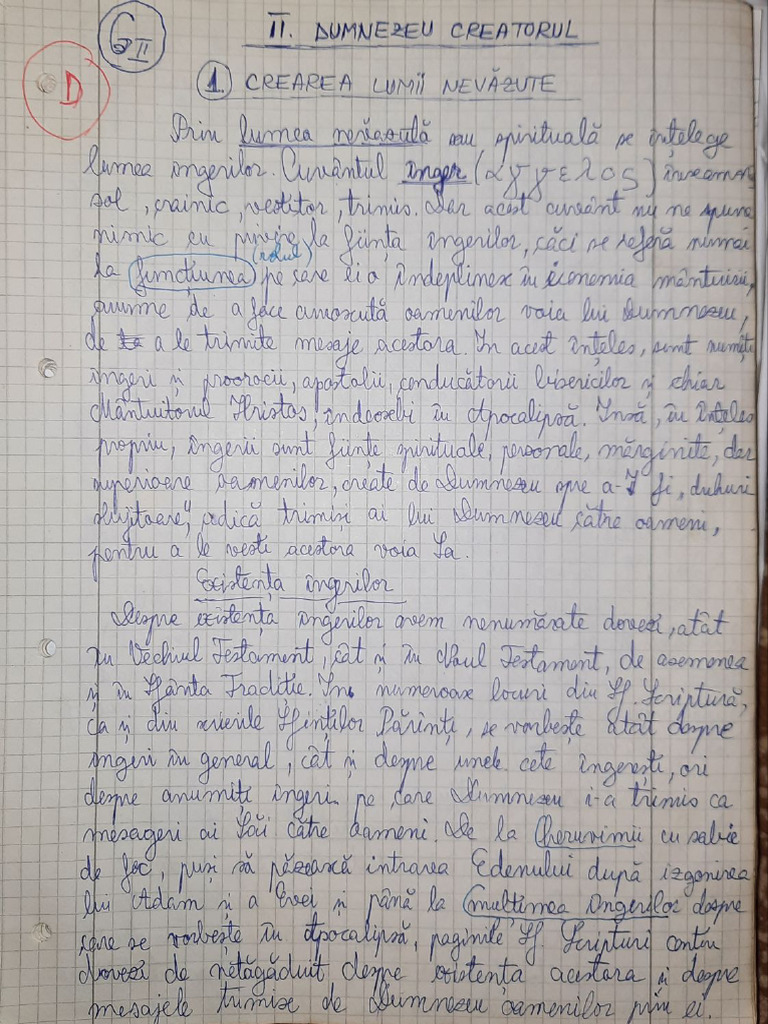 G II
II. DUMNEZEU CREATORUL
D
1. CREAREA LUMII NEVĂZUTE
Prin lumea nevăzută sau spirituală se înțelege
lumea îngerilor. Cuvântul înger (αγγελος) înseamnă
sol, crainic, vestitor, trimis. Dar acest cuvânt nu ne spune
nimic cu privire la ființa îngerilor, căci se referă numai
(rolul)
la funcțiunea pe care ei o îndeplinesc în economia mântuirii,
anume de a face cunoscută oamenilor voia lui Dumnezeu,
de a le trimite mesaje acestora. În acest înțeles, sunt numiți
îngeri și proorocii, apostolii, conducătorii bisericilor și chiar
Mântuitorul Hristos, îndeosebi în Apocalipsă. Însă, în înțeles
propriu, îngerii sunt ființe spirituale, personale, mărginite, dar
superioare oamenilor, create de Dumnezeu spre a-I fi „duhuri
slujitoare", adică trimiși ai lui Dumnezeu către oameni,
pentru a le vesti acestora voia Sa.
Existența îngerilor
Despre existența îngerilor avem nenumărate dovezi, atât
în Vechiul Testament, cât și în Noul Testament, de asemenea
și în Sfânta Tradiție. În numeroase locuri din Sf. Scriptură,
ca și din scrierile Sfinților Părinți, se vorbește atât despre
îngeri în general, cât și despre unele cete îngerești, ori
despre anumiți îngeri pe care Dumnezeu i-a trimis ca
mesageri ai Săi către oameni. De la Heruvimii cu sabie
de foc, puși să păzească intrarea Edenului după izgonirea
lui Adam și a Evei și până la mulțimea îngerilor despre
care se vorbește în Apocalipsă, paginile Sf. Scripturi conțin
dovezi de netăgăduit despre existența acestora și despre
mesajele trimise de Dumnezeu oamenilor prin ei.